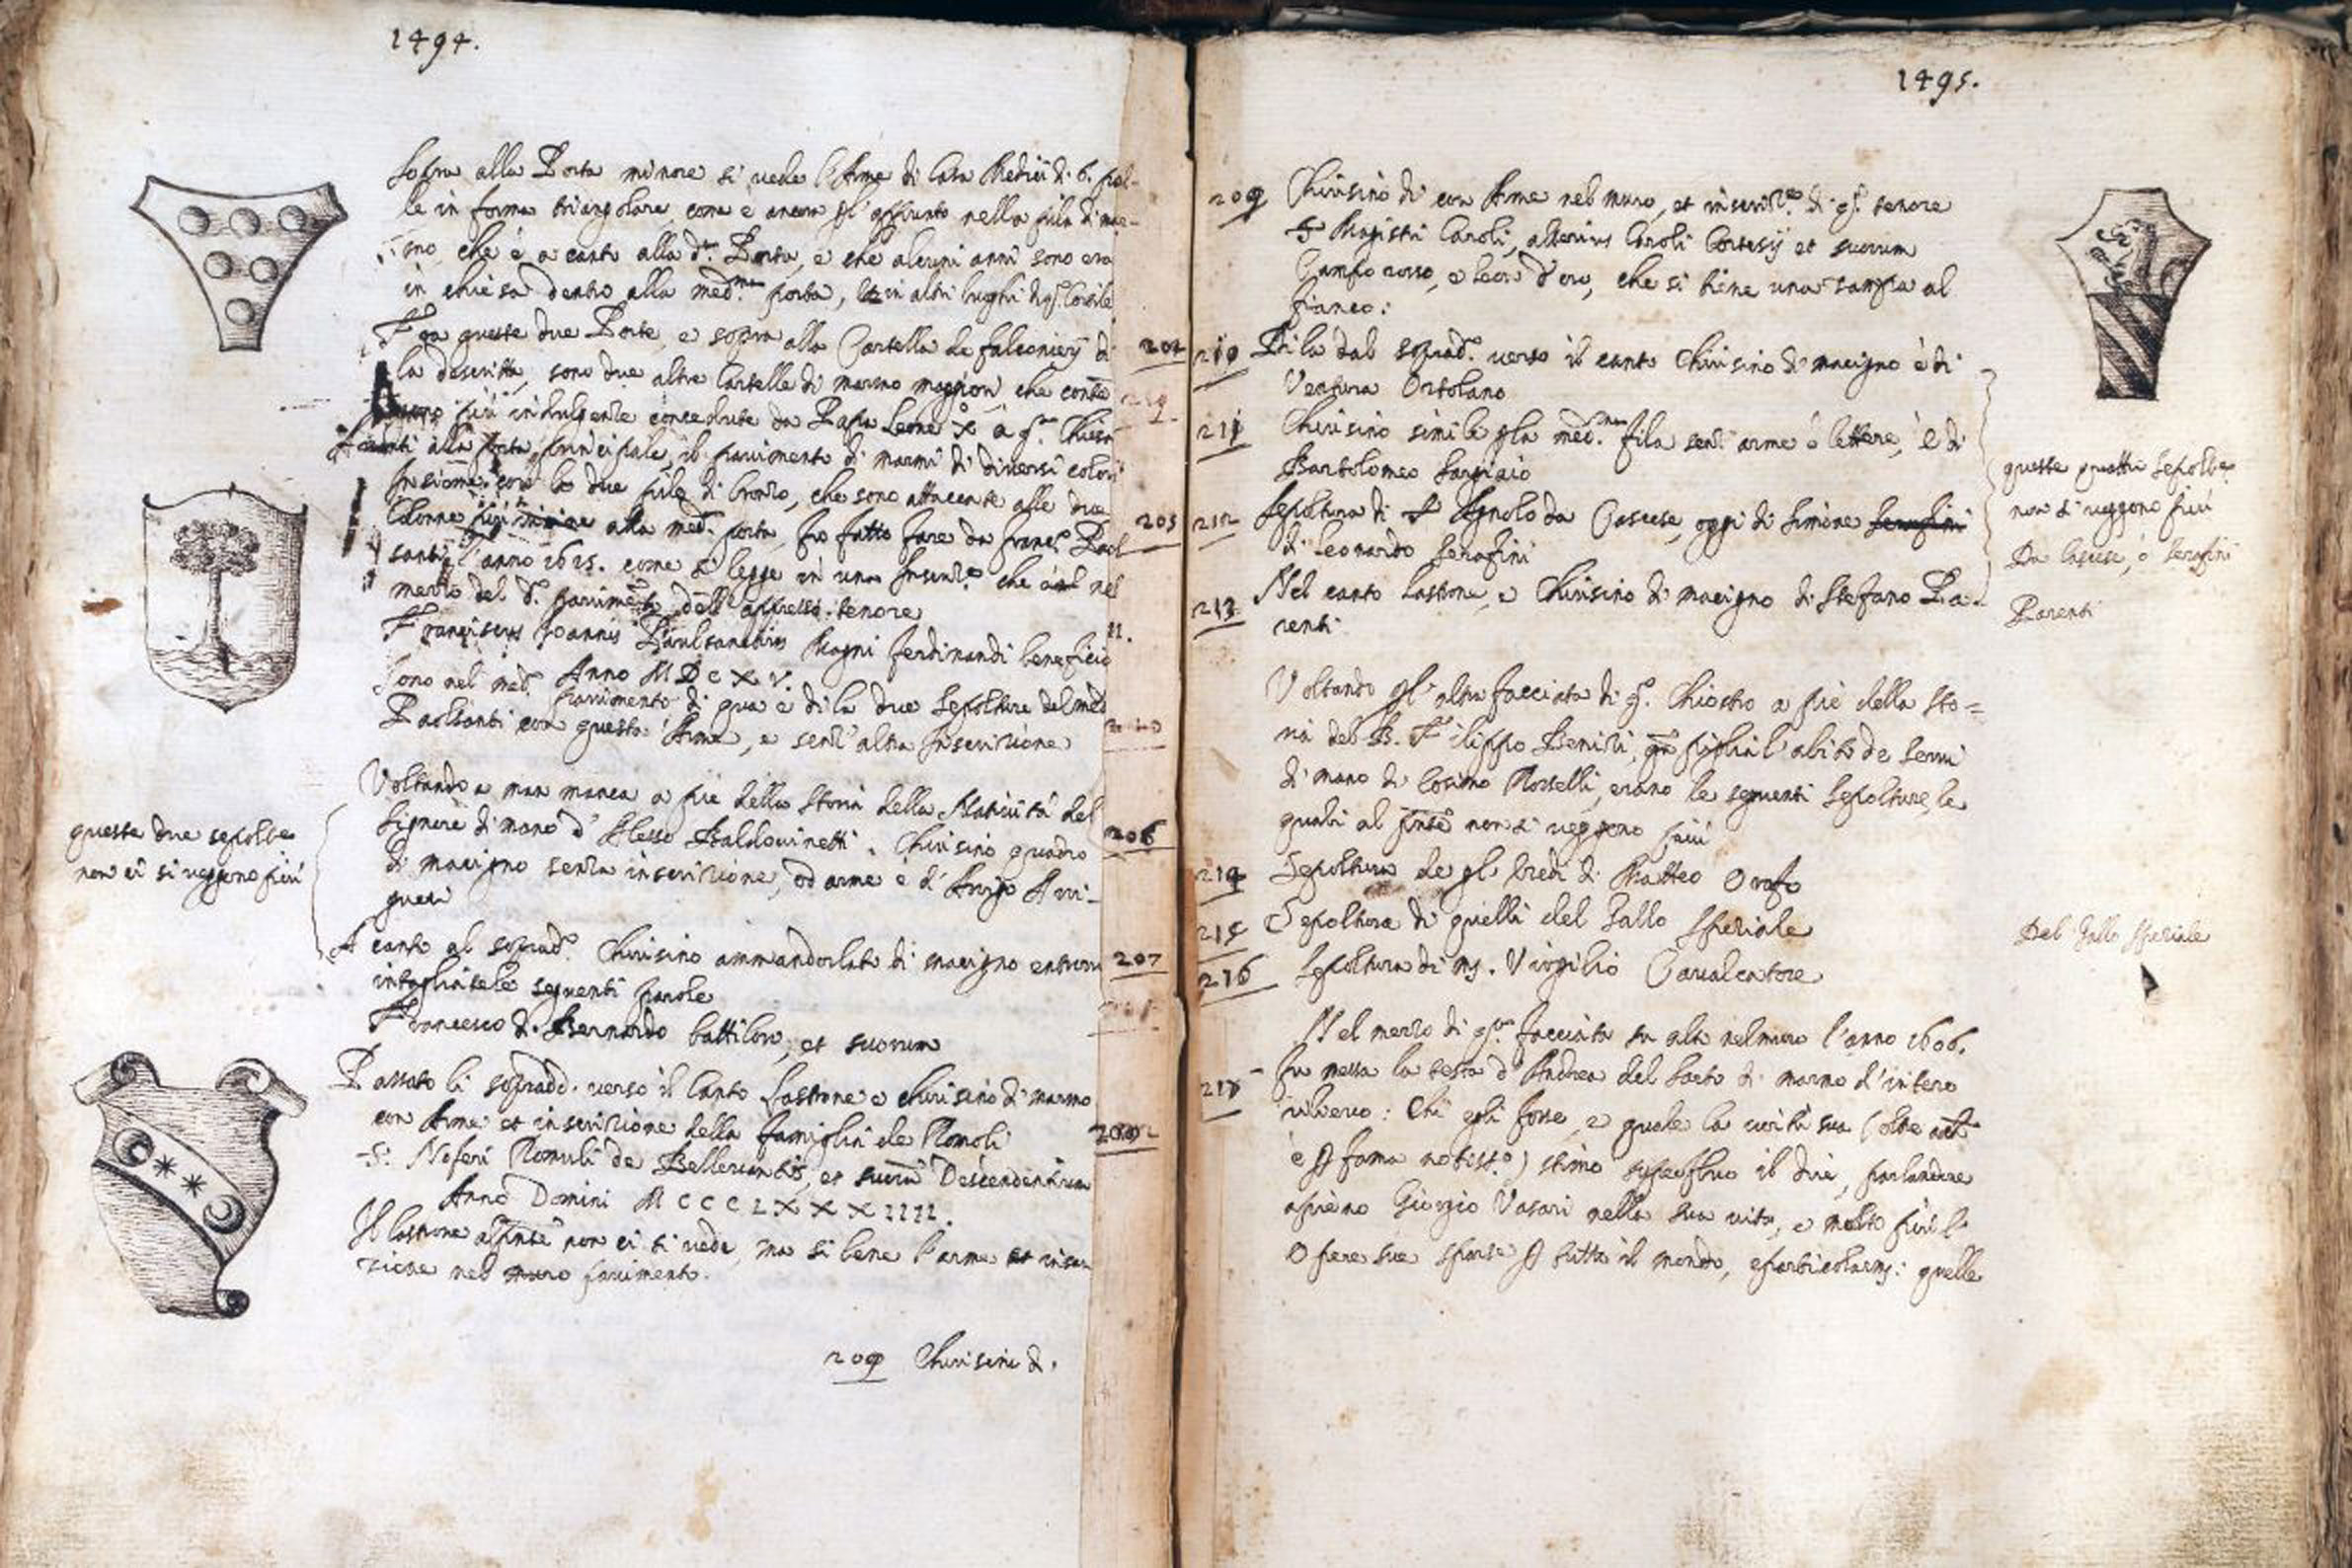 1494.
Sopra alla Porta minore si vede l'Arme di Casa Medici di 6. pal-
le in forma triangolare, come e ancora nella pila di mar-
mo, che è a canto alla d.ª Porta, e che alcuni anni sono era
in chiesa dentro alla med.ma porta, et in altri luoghi
Fra queste due Porte, e sopra alla Cartella de falconierj di
la descritta, sono due altre Cartelle di marmo maggiori, che conte
202
più indulgenze concedute da Papa Leone X à q.ª Chiesa
Avanti alla porta principale, il pavimento di marmi di diversi colori
Insieme con le due pile di bronzo, che sono attaccate alle due
Colonne più alla med.ª porta, fu fatto fare da Franc.º Paol
205
santi l'anno 1615. come si legge in una che nel
mezzo del d.º pavimento dell'appresso tenore
Franciscus Joannis Paulsanctius Magni Ferdinandi beneficio
11.
Anno M D C X V.
Sono nel med.º pavimento di qua e di la due Sepolture del med
Paolsanti con questa Arme, e senz'altra Inscrizione
Voltando a man manca a piè della storia della Natività del
Signore di mano d'Alesso Baldovinetti. Chiusino quadro
206
di macigno senza inscrizione, od arme è d'Arrigo Arri-
guci
queste due sepolte
non ci si veggono più
A canto al soprad.º Chiusino ammandorlato di macigno entrovi
207
intagliatele seguenti parole
Francesco di Bernardo battiloro, et suorum
Passato li sopradd. verso il Canto Lastrone e chiusino di marmo
con Arme et inscrizione della famiglia de Romoli
208
S. Noferi Romuli de Bellervantis, et suorū Descendentium
Anno Domini M C C C L X X X IIII.
Il lastrone al pnte non ci si vede, ma si bene l'arme et inscri
zione nel muro pavimento.
209 Chiusini di.
1495.
209 Chiusino di con Arme nel muro, et inscriz.e di q.º tenore
S. Magistri Caroli, alterius Caroli Cortesij et suorum
Campo rosso, e leon d'oro, che si tiene una zampa al
fianco:
210 Di la dal soprad.º verso il canto Chiusino di macigno è di
Ventura Ortolano
211 Chiusino simile p la med.ma fila senz'arme o lettere, è di
Bartolomeo Sargiaio
212 Sepoltura di S. Agnolo da Cascese, oggi di Simone Serafini
di Leonardo Serafini
213 Nel canto Lastrone, e Chiusino di macigno di Stefano Pa-
renti
queste quattro Sepolte
non si veggono più
Da Cascese, o Serafini
Parenti
Voltando p l'altra facciata di q.º Chiostro a piè della Sto=
ria del B. Filippo Benizi, piglia l'abito de Servi
di mano di Cosimo Rosselli, erano le seguenti Sepolture, le
quali al pnte non si veggono più
214 Sepoltura de gl'Eredi di Matteo Orafo
215 Sepoltura di quelli del Gallo Speziale
Del Gallo Speziale
216 Sepoltura di ms. Virgilio Cavalcatore
Nel mezzo di q.ta facciata su alto nel muro l'anno 1606.
217 fu messa la testa d'Andrea del Sarto di marmo d'intero
rilievo: Chi egli fosse, e quale la virtù sua (oltre
è p fama notiss.º) stimo superfluo il dire, parlandone
apieno Giorgio Vasari nella sua vita, e molto più l'
Opere sue sparse p tutto il mondo, eparticolarm: quelle